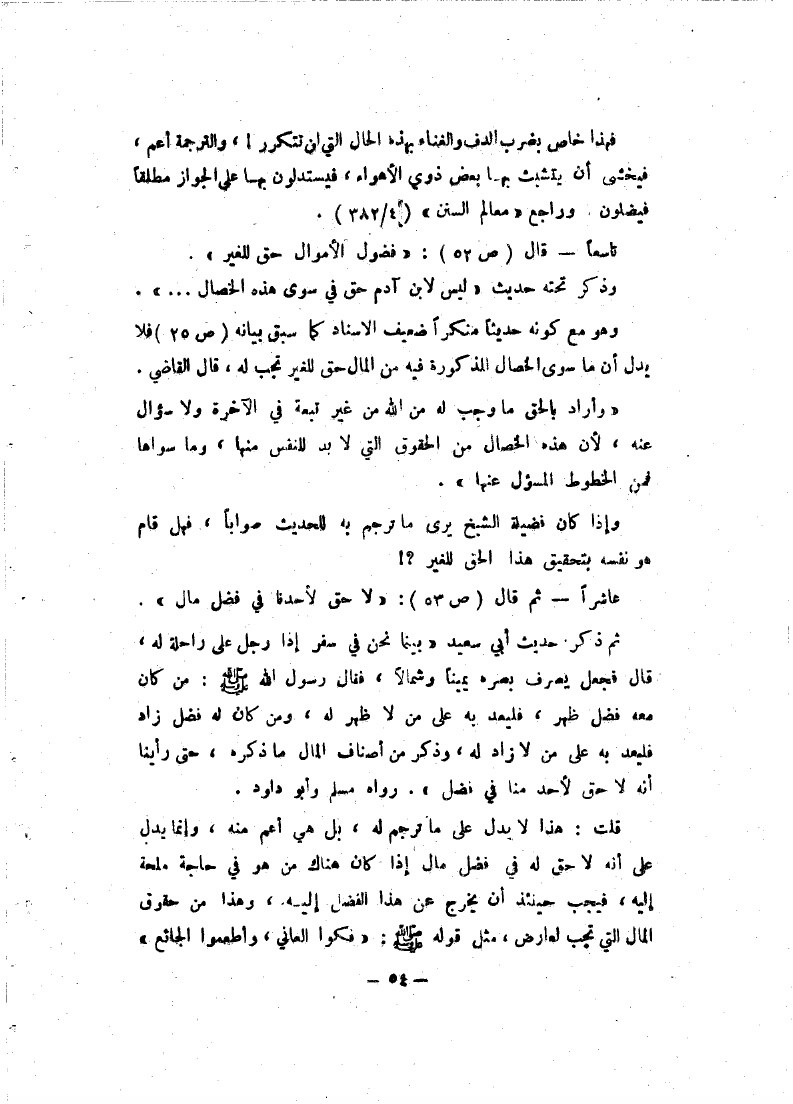 فهذا خاص بضرب الدف والغناء بهذه الحال التي لن تتكرر ! والترجمة أعم ،
فيخشى أن يتشبث بها بعض ذوي الأهواء ، فيستدلون بها على الجواز مطلقاً
فيضلون . وراجع « معالم السنن » ( ٤/٣٨٢ ) .
تاسعاً — قال ( ص ٥٢ ) : « فضول الأموال حق للغير » .
وذكر تحته حديث « ليس لابن آدم حق في سوى هذه الخصال ... » .
وهو مع كونه حديثاً منكراً ضعيف الاسناد كما سبق بيانه ( ص ٢٥ ) فلا
يدل أن ما سوى الخصال المذكورة فيه من المال حق للغير تجب له ، قال القاضي .
« وأراد بالحق ما وجب له من الله من غير تبعة في الآخرة ولا سؤال
عنه ، لأن هذه الخصال من الحقوق التي لا بد للنفس منها ، وما سواها
فمن الحظوظ المسؤل عنها » .
وإذا كان فضيلة الشيخ يرى ما ترجم به للحديث صواباً ، فهل قام
هو نفسه بتحقيق هذا الحق للغير ؟!
عاشراً — ثم قال ( ص ٥٣ ) : « لا حق لأحدنا في فضل مال » .
ثم ذكر حديث أبي سعيد « بينما نحن في سفر إذا رجل على راحلة له ،
قال فجعل يصرف بصره يميناً وشمالاً ، فقال رسول الله ﷺ : من كان
معه فضل ظهر ، فليعد به على من لا ظهر له ، ومن كان له فضل زاد
فليعد به على من لا زاد له ، وذكر من أصناف المال ما ذكره ، حتى رأينا
أنه لا حق لأحد منا في فضل » . رواه مسلم وأبو داود .
قلت : هذا لا يدل على ما ترجم له ، بل هي أعم منه ، وإنما يدل
على أنه لا حق له في فضل مال إذا كان هناك من هو في حاجة ملحة
إليه ، فيجب حينئذ أن يخرج عن هذا الفضل إليه ، وهذا من حقوق
المال التي تجب لعارض ، مثل قوله ﷺ : « فكوا العاني ، وأطعموا الجائع »
— ٥٤ —